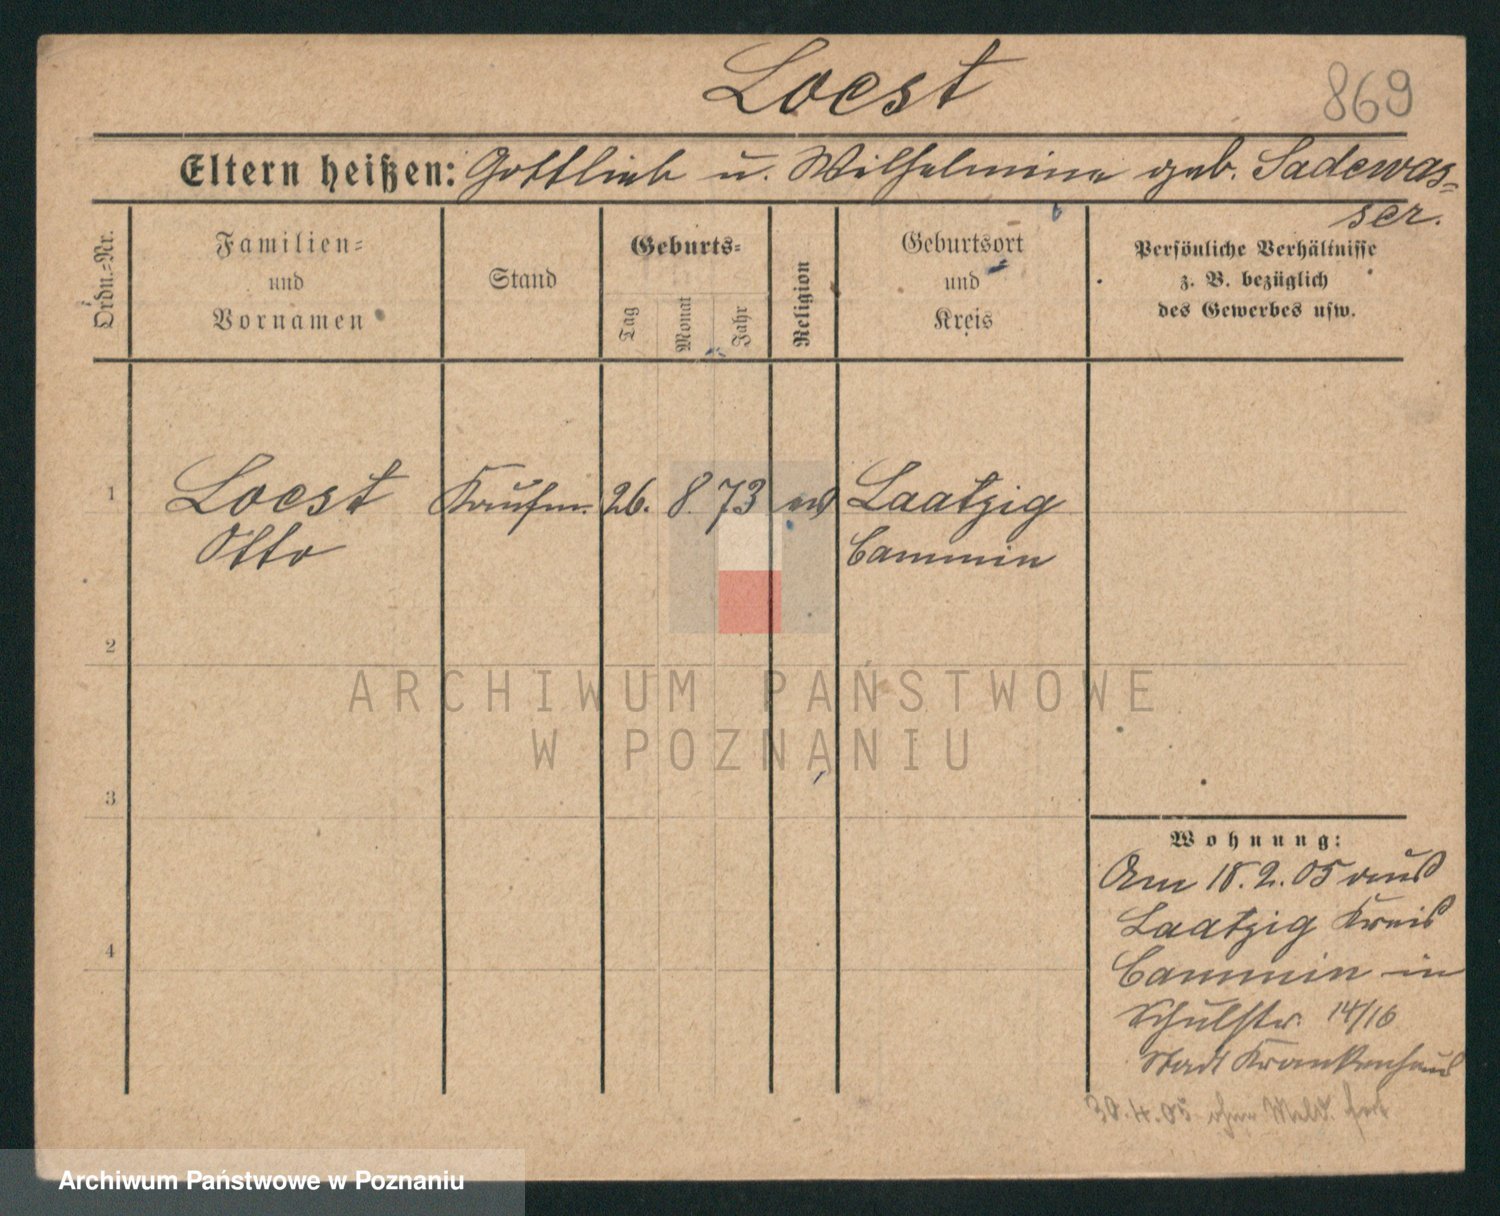 Loest
869
Eltern heißen: Gottlieb u. Wilhelmine geb. Sadewas=
ser.
Ordn.=Nr.
Familien=
und
Vornamen
Stand
Geburts=
Tag
Monat
Jahr
Religion
Geburtsort
und
Kreis
Persönliche Verhältnisse
z. B. bezüglich
des Gewerbes usw.
1 Loest Kaufm. 26. 8. 73 ev Laatzig
Otto Cammin
2
3
4
ARCHIWUM PAŃSTWOWE
W POZNANIU
Wohnung:
Am 18.2.05 aus
Laatzig Kreis
Cammin in
Schulstr. 14/16
Stadt Krankenhaus
30.4.05 ohne Meld. fort
Archiwum Państwowe w Poznaniu